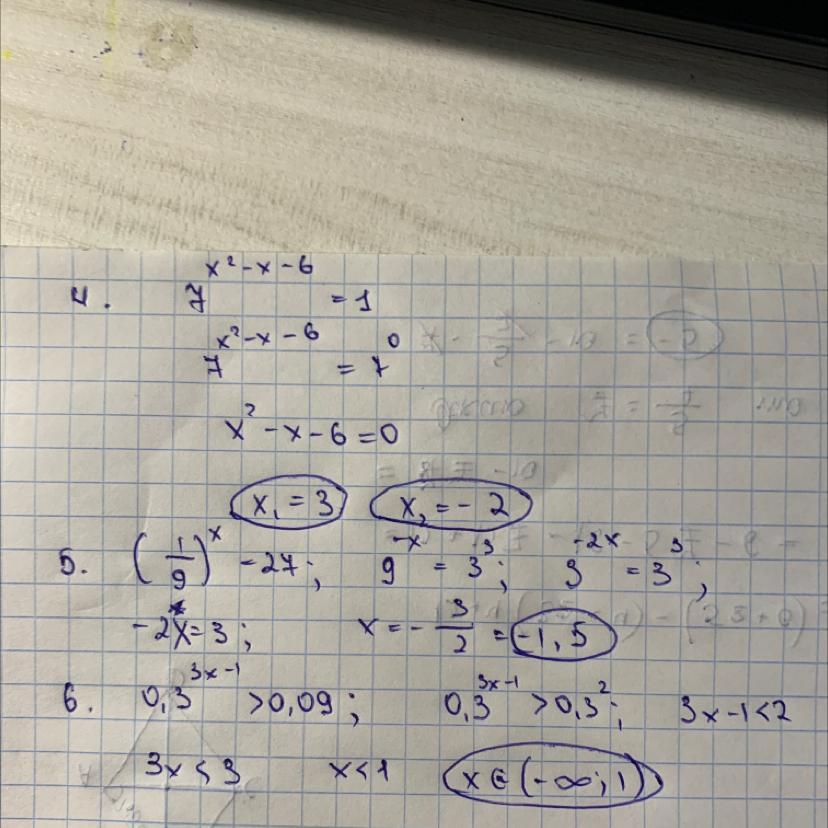 4. 7^{x²-x-6} = 1
7^{x²-x-6} = 7^0
x²-x-6=0
x₁=3 x₂=-2
5. (1/9)^x -27; 9^{-x} = 3³; 3^{-2x} = 3³;
-2x=3; x=-3/2 = -1,5
6. 0,3^{3x-1} >0,09; 0,3^{3x-1} >0,3²; 3x-1<2
3x<3 x<1 x∈(-∞;1)